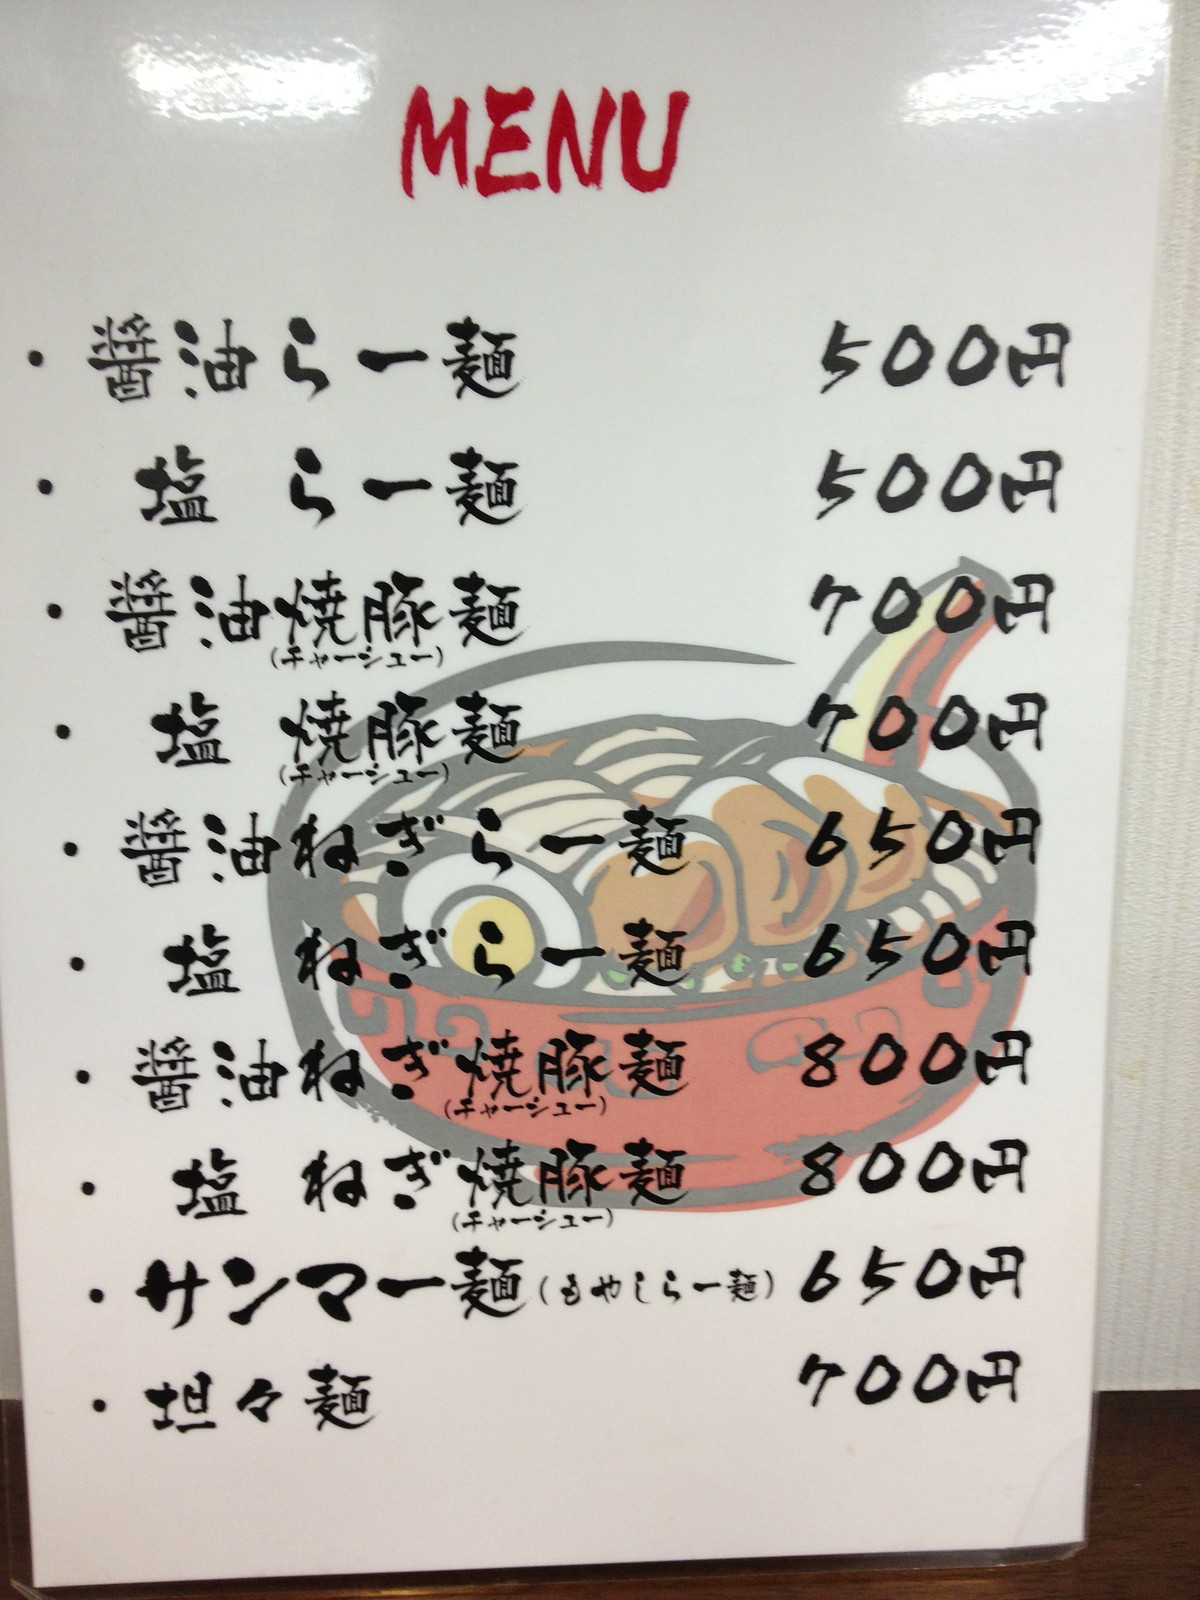 MENU
・醤油らー麺 500円
・塩 らー麺 500円
・醤油焼豚麺 700円
(チャーシュー)
・塩 焼豚麺 700円
(チャーシュー)
・醤油ねぎらー麺 650円
・塩 ねぎらー麺 650円
・醤油ねぎ焼豚麺 800円
(チャーシュー)
・塩 ねぎ焼豚麺 800円
(チャーシュー)
・サンマー麺(もやしらー麺) 650円
・坦々麺 700円